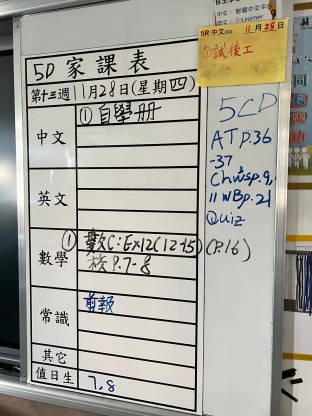 5R 中文 11月28日
①試後工
5D 家課表
第十三週11月28日(星期四)
中文
①自學册
英文
數學
①數C:Ex12(12-15)(P.16)
校P.7-8
常識
剪報
其它
值日生
7,8
5CD
AT p.36
-37
Chwsp.9,
11 WBp.21
Quiz